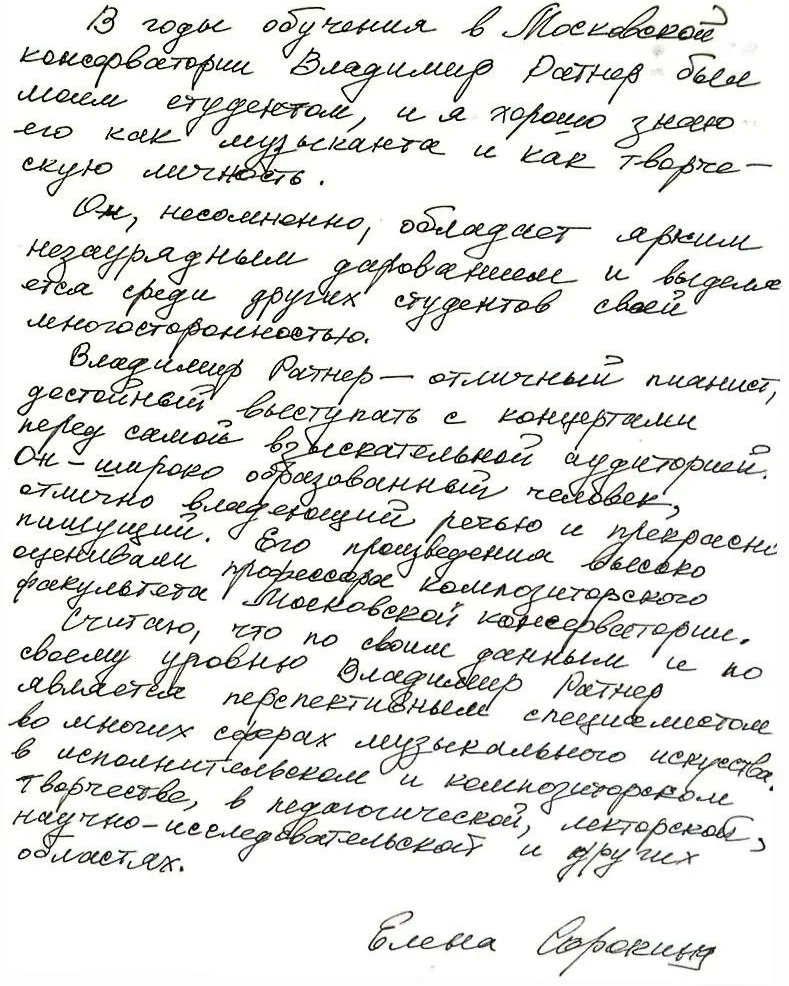 В годы обучения в Московской
консерватории Владимир Ратнер был
моим студентом, и я хорошо знаю
его как музыканта и как творче-
скую личность.
Он, несомненно, обладает ярким
незаурядным дарованием и выделя
ется среди других студентов своей
многосторонностью.
Владимир Ратнер — отличный пианист,
достойный выступать с концертами
перед самой взыскательной аудиторией.
Он – широко образованный человек,
отлично владеющий речью и прекрасно
пишущий. Его произведения высоко
оценивали профессора композиторского
факультета Московской консерватории.
Считаю, что по своим данным и по
своему уровню Владимир Ратнер
является перспективным специалистом
во многих сферах музыкального искусства.
в исполнительском и композиторском
творчестве, в педагогической, лекторской,
научно-исследовательской и других
областях.
Елена Сорокина